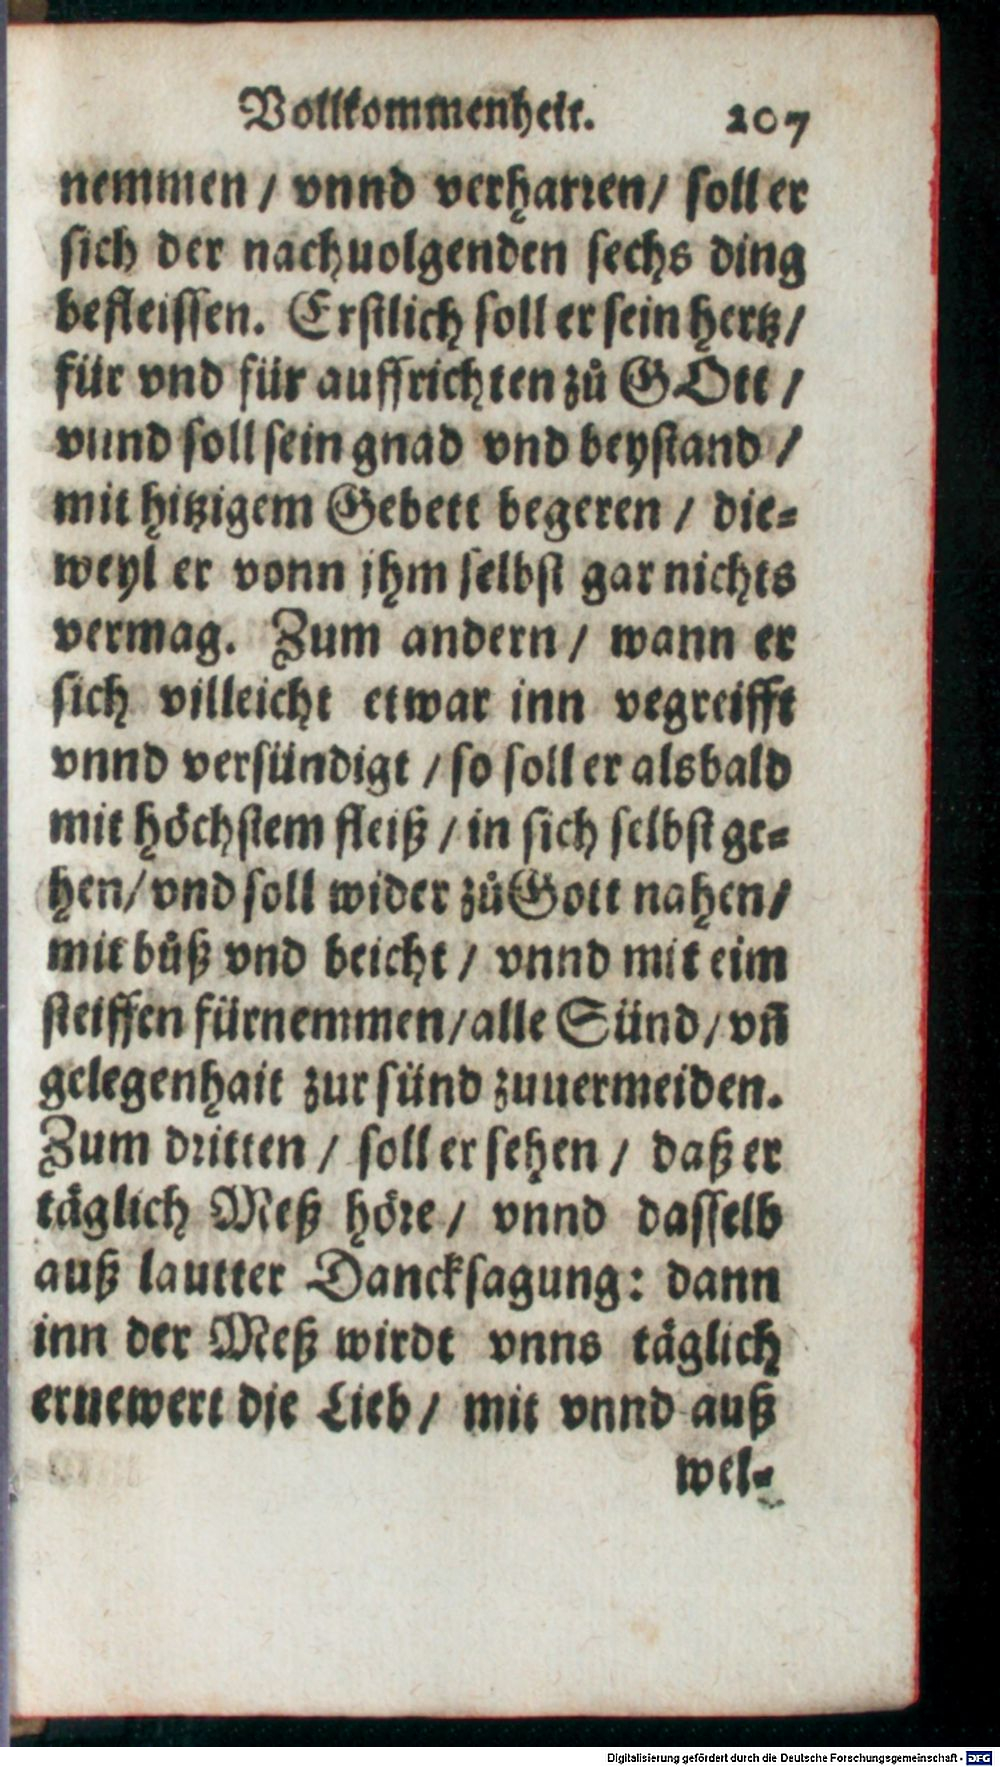 Vollkommenheit. 207
nemmen / vnnd verharren / soll er
sich der nachuolgenden sechs ding
befleissen. Erstlich soll er sein hertz /
für vnd für auffrichten zů GOtt /
vnnd soll sein gnad vnd beystand /
mit hitzigem Gebett begeren / die=
weyl er vonn jhm selbst gar nichts
vermag. Zum andern / wann er
sich villeicht etwar inn vegreifft
vnnd versündigt / so soll er alsbald
mit höchstem fleiß / in sich selbst ge=
hen / vnd soll wider zů Gott nahen /
mit bůß vnd beicht / vnnd mit eim
steiffen fürnemmen / alle Sünd / vn̄
gelegenhait zur sünd zuuermeiden.
Zum dritten / soll er sehen / daß er
täglich Meß höre / vnnd dasselb
auß lautter Dancksagung: dann
inn der Meß wirdt vnns täglich
ernewert die Lieb / mit vnnd auß
wel=
Digitalisierung gefördert durch die Deutsche Forschungsgemeinschaft - DFG